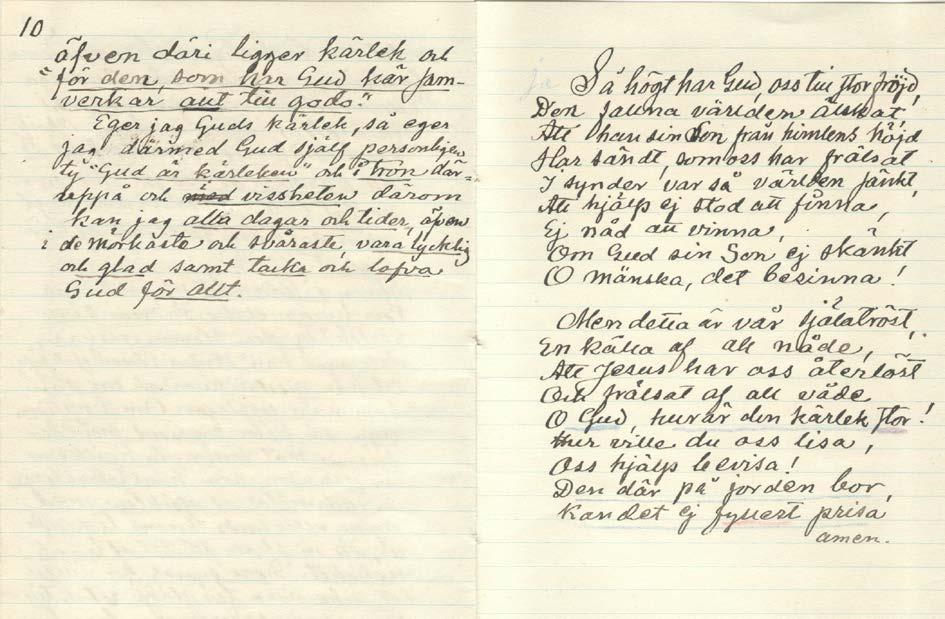 10
äfven däri ligger kärlek och
"för den, som har Gud kär sam-
verkar allt till godo."
Eger jag Guds kärlek, så eger
jag därmed Gud själf personligen
ty "Gud är kärleken" och i tron där-
uppå och med vissheten därom
kan jag alla dagar och tider, äfven
i de mörkaste och svåraste, vara lycklig
och glad samt tacka och lofva
Gud för allt.
Så högt har Gud, oss till stor fröjd,
Den fallna världen älskat,
Att han sin Son från himlens höjd
Har sändt, som oss har frälsat
I synder var så världen sänkt,
Att hjälp ej stod att finna,
Ej nåd att vinna,
Om Gud sin Son ej skänkt
O mänska, det besinna!
Men detta är vår själatröst,
En källa af all nåde,
Att Jesus har oss återlöst
Och frälsat af all våde
O Gud, hur är din kärlek stor!
Hur ville du oss lisa,
Oss hjälp bevisa!
Den där på jorden bor,
Kan det ej fyllest prisa
amen.